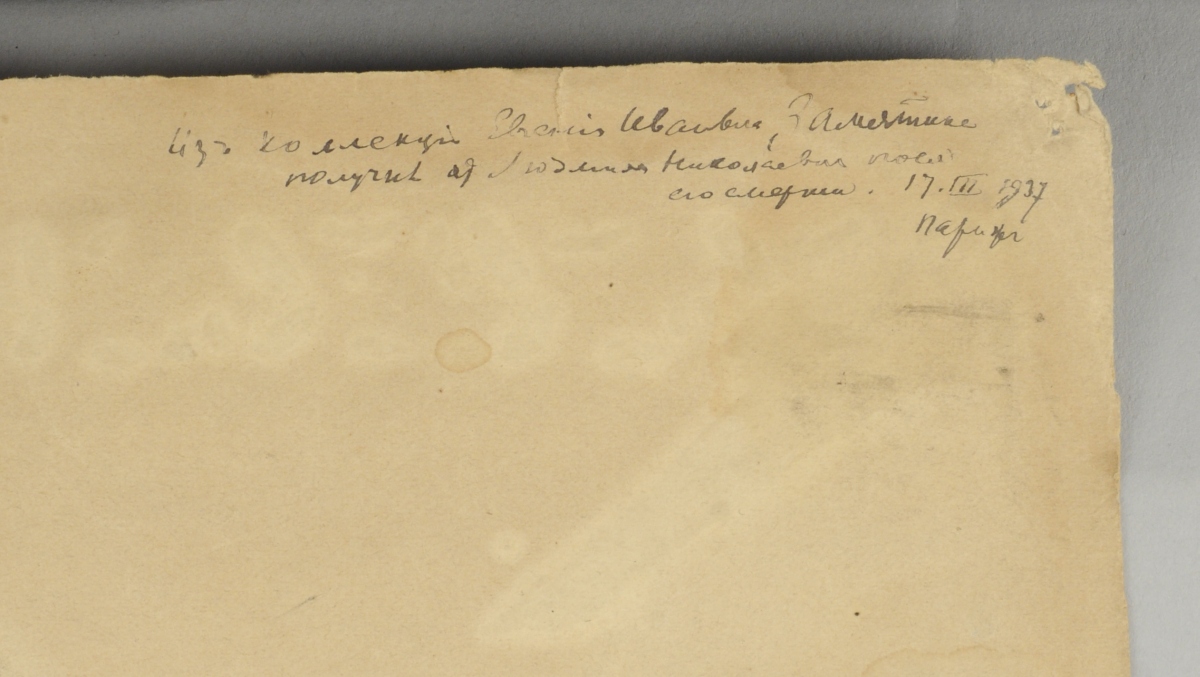 Изъ коллекцiи Евгенiя Ивановича Замятина
получилъ от Людмилы Николаевны после
его смерти. 17.III 1937
Парижъ